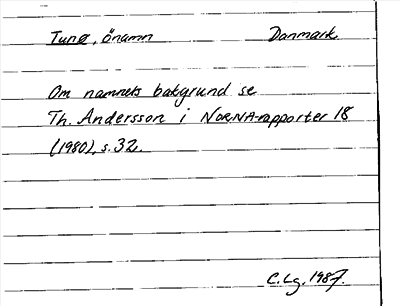 Tunø, önamn Danmark
Om namnets bakgrund se
Th. Andersson i NORNA-rapporter 18
(1980), s. 32.
C. Lg. 1987.